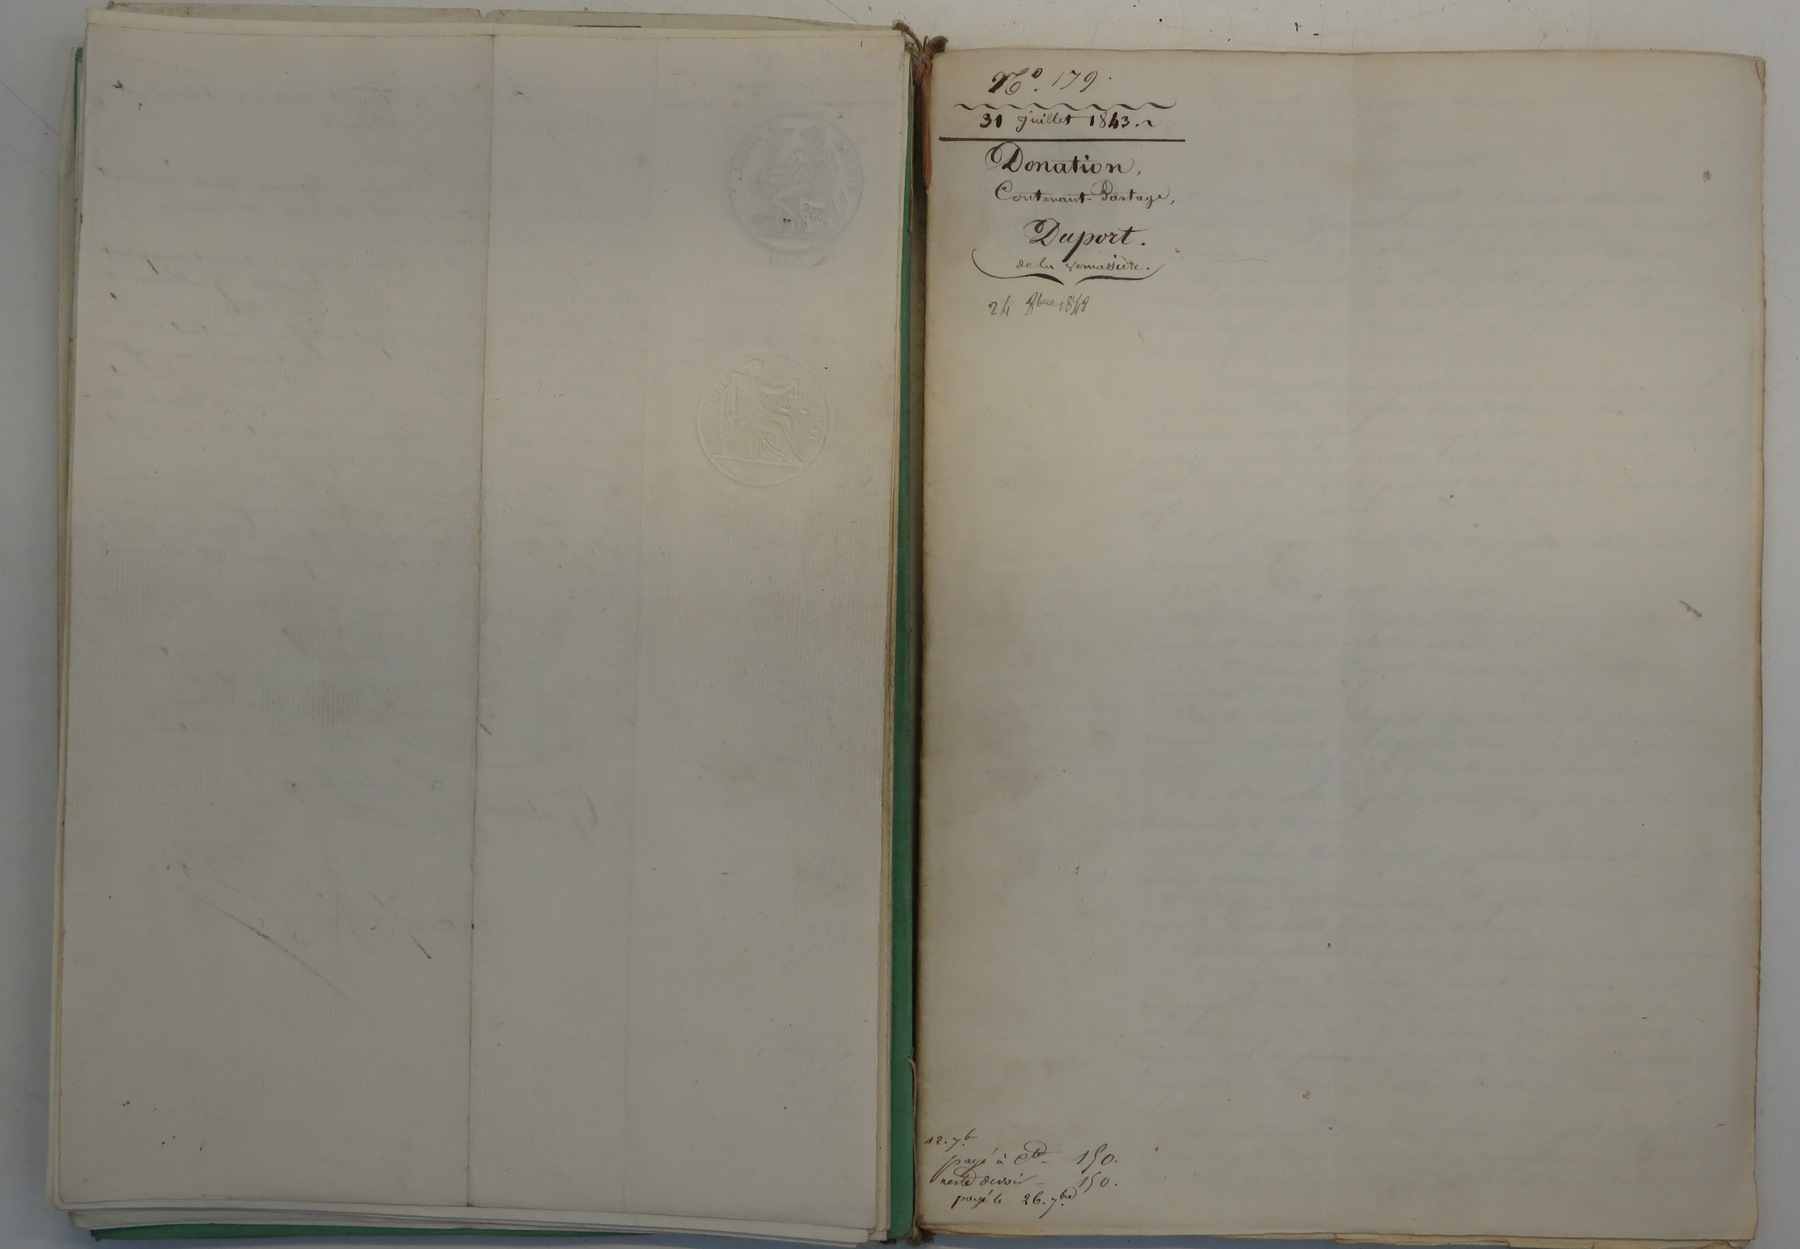 N.o 179.
31 juillet 1843.
Donation,
Contenant Partage,
Duport.
de la
24 8bre 1848
12. 7b
payé à Cte - 150.
reste devoir - 150.
payé le 26. 7bre